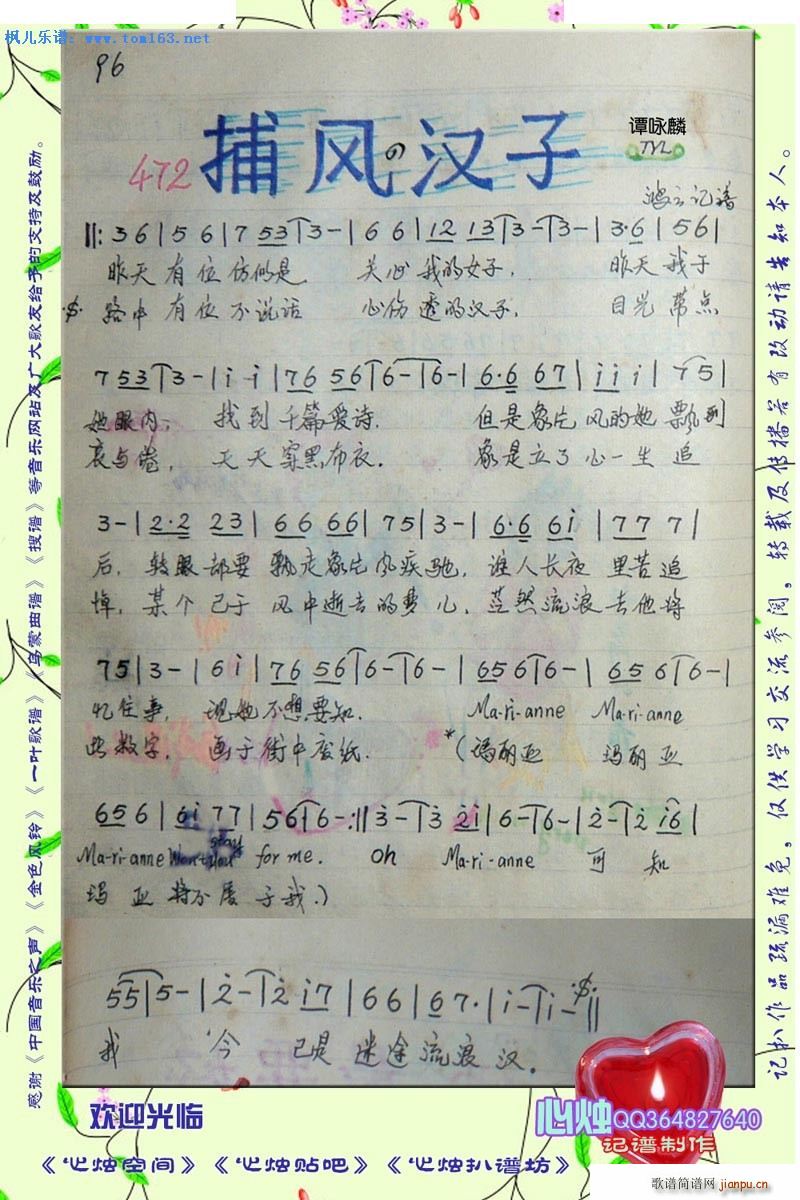 枫儿乐谱: www.tom163.net
96
472 捕风の汉子
谭咏麟
TYL
鸿云记谱
‖: 3 6 | 5 6 | 7 53 | 3 - | 6 6 | 12 13 | 3 - | 3 - | 3·6 | 5 6 |
昨天 有位 仿似是 关心 我的女子. 昨天 我于
路中 有位 不说话 心伤 透的汉子. 目光 带点
7 53 | 3 - | i i | 76 56 | 6 - | 6 - | 6·6 67 | i i i | 7 5 |
她眼内, 找到 千篇爱诗. 但是象片 风的她 飘到
哀与倦, 天天 穿黑布衣. 象是立了 心一生 追
3 - | 2·2 23 | 66 66 | 75 | 3 - | 6·6 6i | 77 7 |
后. 转眼都要 飘走象片 风疾驰, 谁人长夜 里苦追
悼, 某个已于 风中逝去的梦儿. 茫然流浪 去他将
75 | 3 - | 6 i | 76 56 | 6 - | 6 - | 65 6 | 6 - | 65 6 | 6 - |
忆往事, 现她 不想要知. Ma-ri-anne Ma-ri-anne
此数字, 画于 街中废纸. *(玛丽亚 玛丽亚
65 6 | 6i 77 | 56 | 6 - :‖ 3 - | 3 2i | 6 - | 6 - | 2 - | 2 i6 |
Ma-ri-anne Won't you stay for me. Oh Ma-ri-anne 可 知
玛 亚 将不属 于我.)
55 | 5 - | 2 - | 2 i7 | 6 6 | 6 7· | i - | i - ‖
我 今 已是 迷途 流浪 汉.
感谢《中国音乐之声》《金色风铃》《一叶歌谱》《乌蒙曲谱》《搜谱》等音乐网站及广大歌友给予的支持及鼓励。
记扒作品疏漏难免。仅供学习交流参阅。转载及传播若有改动请告知本人。
欢迎光临
心烛QQ364827640
记谱制作
《心烛空间》《心烛贴吧》《心烛扒谱坊》
歌谱简谱网
www.jianpu.cn